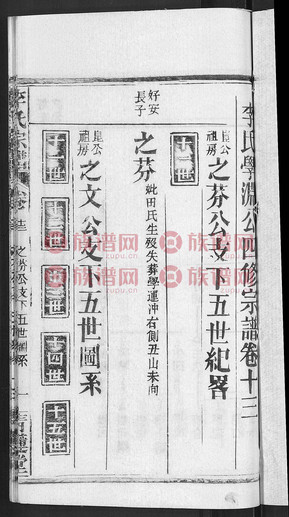 李氏學淵公四修宗譜卷十三
崑公祖房 之芬公支下五世紀畧
十一世
好安長子
之芬 妣田氏生歿失葬學運冲右側丑山未向
崑公祖房 之文公支下五世圖系
十一世 十二世 十三世 十四世 十五世
李氏宗譜 卷十三 之芬公支下五世圖系 一
族譜网
zupu.cn